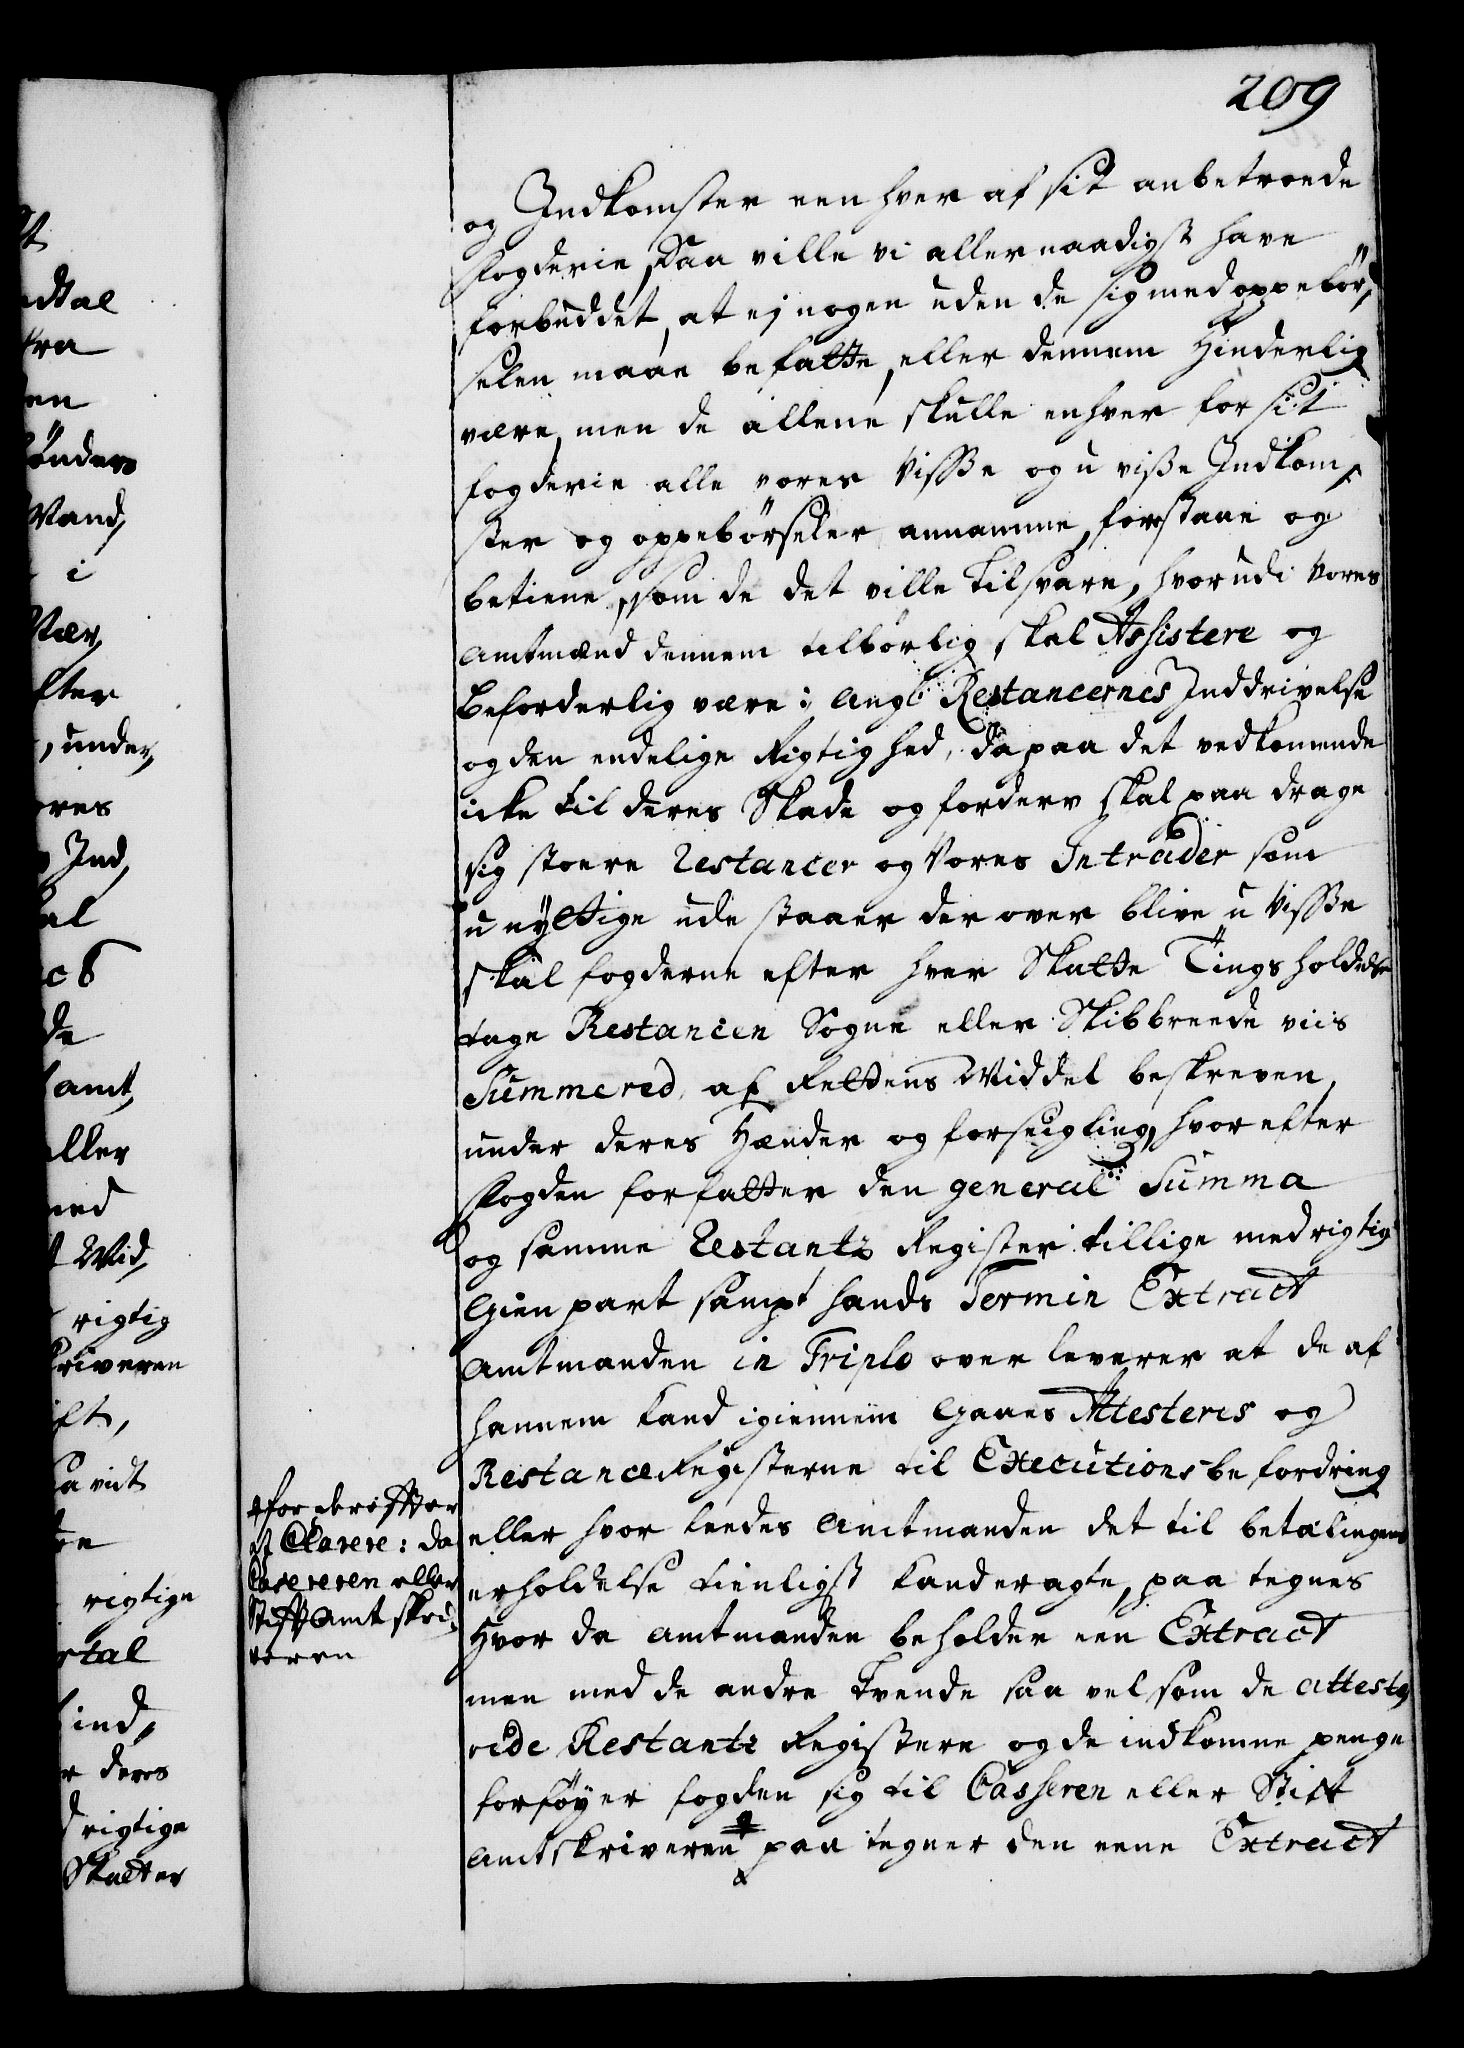 209
og Indkomster een hver af sit anbetroede
Fogderie, Saa ville vi allernaadigst have
forbuddet, at ej nogen uden de sig med oppebør,
selen maae befatte, eller dennem Hinderlig
være, men de allene skulle enhver for sit
fogderie alle vores Visse og u visse Indkom,
ster og oppebørseler annamme, forstaae og
betiene, som de det ville tilsvare, hvorudi Vores
amtmænd dennem tilbørlig skal Assistere og
beforderlig være; ang: Restancernes Inddrivelse
og den endelige Rigtighed, da paa det vedkomende
icke til deres Skade og forderv skal paa drage
sig stoere Restancer og Vores Intrader som
u nyttige ude staaer der over blive u Visse
skal fogderne efter hver Skatte Tings holdelse
tage Restancen Sogne eller Skibbreede viis
Summered, af Rettens Middel beskreven,
under deres Hænder og forseigling, hvorefter
Fogden forfatter den general Summa
og samme Restantz Register tillige med rigtig
Gienpart sampt hands Termin Extract
Amtmanden in Triplo over leverer at de af
hannem kand igiennem gaaes Attesteris og
Restance Registerne til Executions befordring
eller hvor leedes Amtmanden det til betalingens
erholdelse tienligst kand eragte, paa tegnes
Hvor da amtmanden beholder een Extract
men med de andre tvende saa vel som de atteste,
rede Restantz Registere og de indkomne penge
forføyer fogden sig til Casseren eller Stift
amtskriveren paa tegner den eene Extract
for derefter
at Clarere: da
Casereren eller
Stiftamtskri,
veren